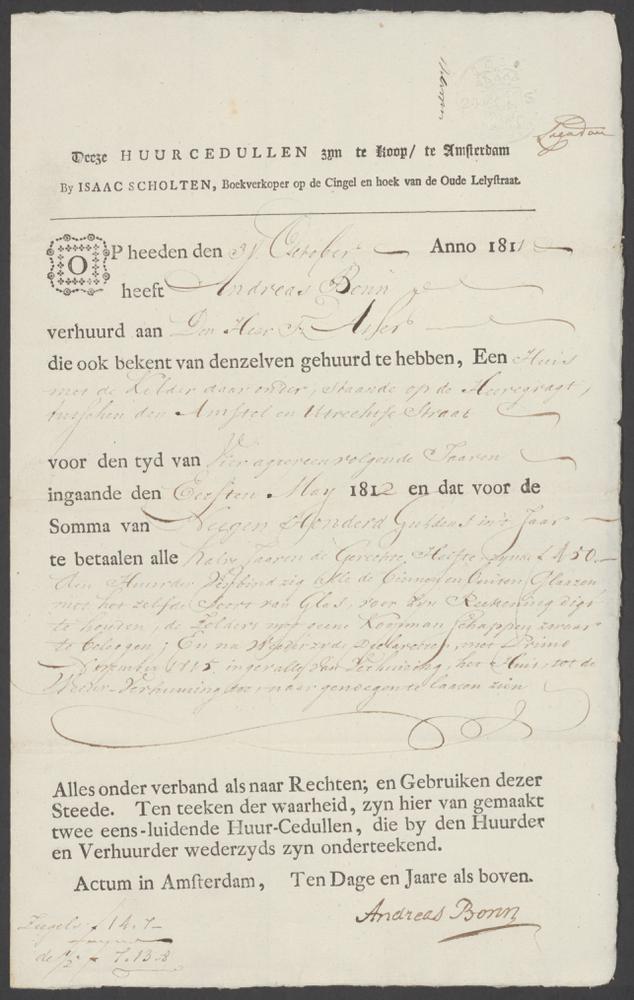 Deeze HUURCEDULLEN zyn te koop/ te Amsterdam
By ISAAC SCHOLTEN, Boekverkoper op de Cingel en hoek van de Oude Lelystraat.
OP heeden den 31 October Anno 1811
heeft Andreas Bonn
verhuurd aan Den Heer Asser
die ook bekent van denzelven gehuurd te hebben, Een Huis
met de Kelder daar onder, staande op de Heeregragt,
tusschen den Amstel en Utrechtse Straat
voor den tyd van Vier agtereenvolgende Jaaren
ingaande den Eersten May 1812 en dat voor de
Somma van Neegen Honderd Guldens in't Jaar
te betaalen alle halve Jaaren de Gerechte Helfte zynde ƒ 450.
den Huurder Verbind zig alle de binnen en buiten Glaazen
met het zelfde Soort van Glas, voor zyn Reekening digt
te houden, de Zolders met geene Koopmanschappen zwaar
te beleggen; En na Wederzyds Declaratie, met Primo
November 1815 ingevalle van Verhuizing, het Huis, tot de
Weder-Verhuuring te laaten zien
Alles onder verband als naar Rechten; en Gebruiken dezer
Steede. Ten teeken der waarheid, zyn hier van gemaakt
twee eens-luidende Huur-Cedullen, die by den Huurder
en Verhuurder wederzyds zyn onderteekend.
Actum in Amsterdam, Ten Dage en Jaare als boven.
Andreas Bonn
Zegels ƒ 14.7-
de ½ ƒ 7.13.8